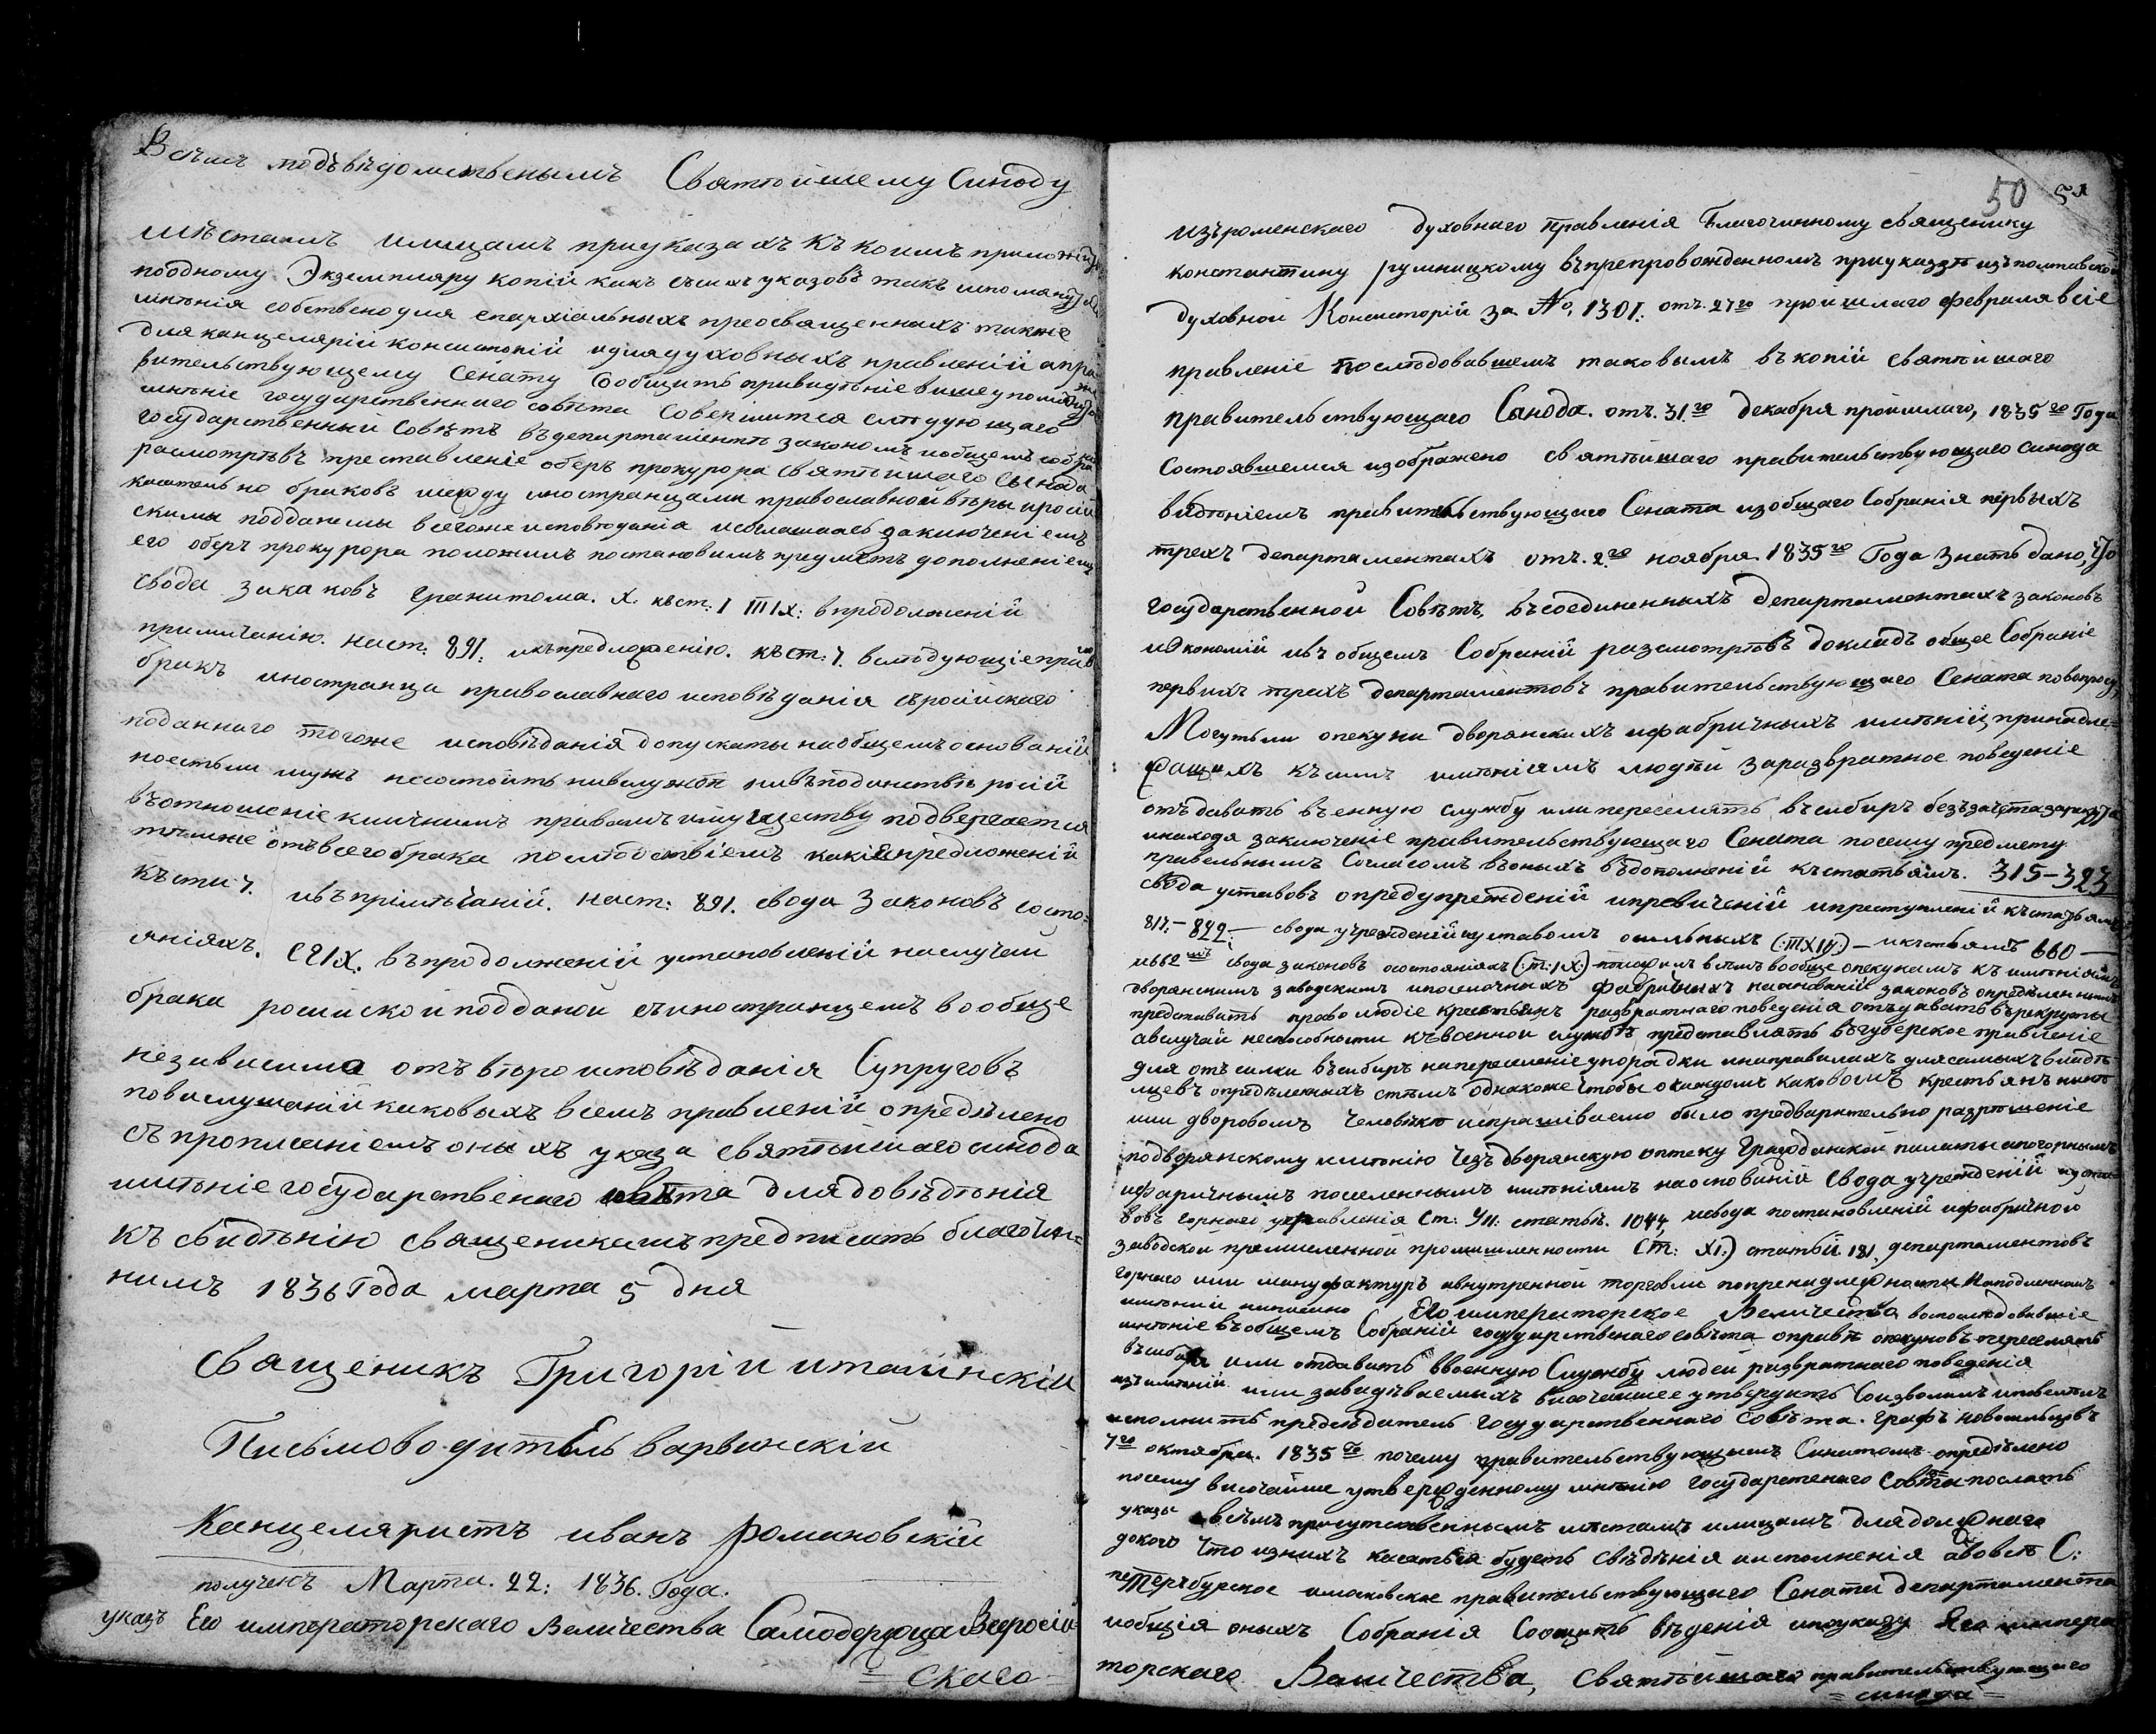 Всѣмъ подъвѣдомственымъ Святѣйшему Синоду
мѣстамъ илицамъ приуказахъ къ коимъ приложить
поодному Экземпляру копій какъ съсихъ указовъ такъ ипомянутаго
мнѣнія собственодля епархіальныхъ преосвященныхъ также
для канцелярій консисторій идлядуховныхъ правленій апра
вительствующему Сенату Сообщить привидѣніе вышеупомянутое
мнѣніе государственнаго совѣта Совершится слѣдующаго
государственныи Совѣтъ въдепартаментѣ закономъ иобщемъ собра
расмотрѣвъ преставленіе оберъ прокурора Святѣйшаго Сынода
касательно браковъ между иностранцами православной вѣры иросій
скими подданеми всегоже исповѣданія исоглашаясь заключеніемъ
его оберъ прокурора положилъ постановилъ предметъ дополненіемъ
свода законовъ гранитома. X. къст: I III IX: впродолженій
примичанію. наст: 891: икъпредложенію. къст: 7. вслѣдующіеправ
бракъ иностранца православнаго исповѣданія съросійскаго
поданнаго тогоже исповѣданія допускаты наобщемъ основаній
ноестьли мужъ несостоитъ нивслужбѣ нивъподанствѣ росій
въотношеніе кличнымъ правамъ имуществу подвергается
тѣмже отъвсегобрака послѣдствіемъ какіяпредложеній
късти 7. ивъпримѣчаній. наст: 891. свода Законовъ состо=
яніяхъ. СТ IX. въпродолженій установленій наслучай
брака росийской подданой съиностранцемъ вообще
независимо отъ вѣроисповѣданія Супруговъ
повислушаній каковыхъ всемъ правленій опредѣлено
съ прописаніемъ оныхъ указа святѣйшаго синода
мнѣніе государственаго совѣта для довѣдѣнія
къ свидѣнію священикамъ предписать благочин=
нимъ 1836 Года марта 5 дня
Священикъ Григорій италинскій
Письмоводитель варвинскій
Канцеляристъ иванъ романовскій
полученъ Марта. 22: 1836. Года.
указъ Его императорскаго Величества Самодержца Всеросій=
= скаго =
50 51
изъроменскаго духовнаго Правленія Благочинному священику
константину румницкому въпрепровожденномъ приуказѣ изъполтавской
духовной Консисторій за №. 1301. отъ. 27го прошлаго февраля всіе
правленіе послѣдовавшемъ таковымъ въ копій святѣйшаго
правительствующаго Сынода. отъ. 31.го декабря прошлаго, 1835го Года
Состоявшемся изображено святѣйшаго правительствующаго синода
видѣніемъ правительствующаго Сената изобщаго Собранія первыхъ
трехъ департаментахъ отъ. 2.го ноября 1835го Года знать дано, что
государственной Совѣтъ, въсоединенныхъ департаментахъ законовъ
иэкономій ивъ общемъ Собраній разсмотрѣвъ докладъ общее Собраніе
первыхъ трехъ департаментовъ правительствующаго Сената повопросу
Могутъли опекуни дворянскихъ ифабричныхъ имѣній принадле=
жащихъ късимъ имѣніямъ людей заразвратное поведеніе
отъдавать въенную службу или переселять въсибирь безъзачета зарекрута
инаходя заключеніе правительствующаго Сената посему предмету
правельнымъ Согласомъ въоныхъ въдополненій къстатьямъ. 315-323
свода уставовъ опредупрежденій ипревиченій ипреступленій къстатьямъ
817.- 822.- свода учрежденійиуставомъ осильныхъ (: ТXIV:) - икъстьямъ 660 -
и662мъ свода законовъ осостояніяхъ (: т: IX:) - вообще опекунамъ къ имѣніямъ
дворянскимъ заводскимъ ипоселочныхъ фабричныхъ наоснованій законовъ опредѣленныхъ
предоставить право людіе крестьянъ развратнаго поведенія отъдавать върекруты
авслучай неспособности къвоенной службѣ представлять въгуберское правленіе
для отъсилки въсибирь напереселеніе упорядки инаправилахъ длясамыхъ владѣ
лцевъ опредѣленныхъ стѣмъ однакоже чтобы окаждомъ каковомъ крестьянъ
или дворовомъ человѣкѣ испрашиваемо было предварительно разрѣшеніе
подворянскому имѣнію чезъ дворянскую оптеку Гражданской палаты апогорнымъ
ифаричнымъ поселеннымъ имѣніямъ наоснованій свода учрежденій иуста
вовъ горнаго управленія Ст: УII: статьѣ. 1044, исвода постановленій ифабричной
заводской промишленности (Т: XI:) статьй 181. департаментовъ
горнаго или мануфактуръ ивнутренной торговли попренадлежности
имѣній Его императорское Величество воспослѣдовавшіе
мнѣніе въобщемъ Собраній государственаго совѣта оправѣ опекуновъ переселять
въсибирь или отдавать ввоенную Службу людей развратнаго поведенія
изъимѣній ими завидѣваемыхъ височайшее утвердить Соизволилъ иповелѣлъ
исполнить предсѣдатель государственнаго совѣта. графъ новосильцовъ
7го октября. 1835го почему правительствующимъ Синатомъ опредѣлено
посему височайше утвержденному мнѣнію государственаго Совѣта послать
указы всѣмъ присутственнымъ мѣстамъ илицамъ для должнаго
докого что изнихъ касаться будеть свѣдѣнія иисполненія авовсѣ С:
петерьбурское имосковское правительствующаго Сената департамента
иобщія оныхъ Собранія Сообщить вѣденія ипоуказу Его импера
торскаго Величества, святѣйшаго правительствующаго
= синода =